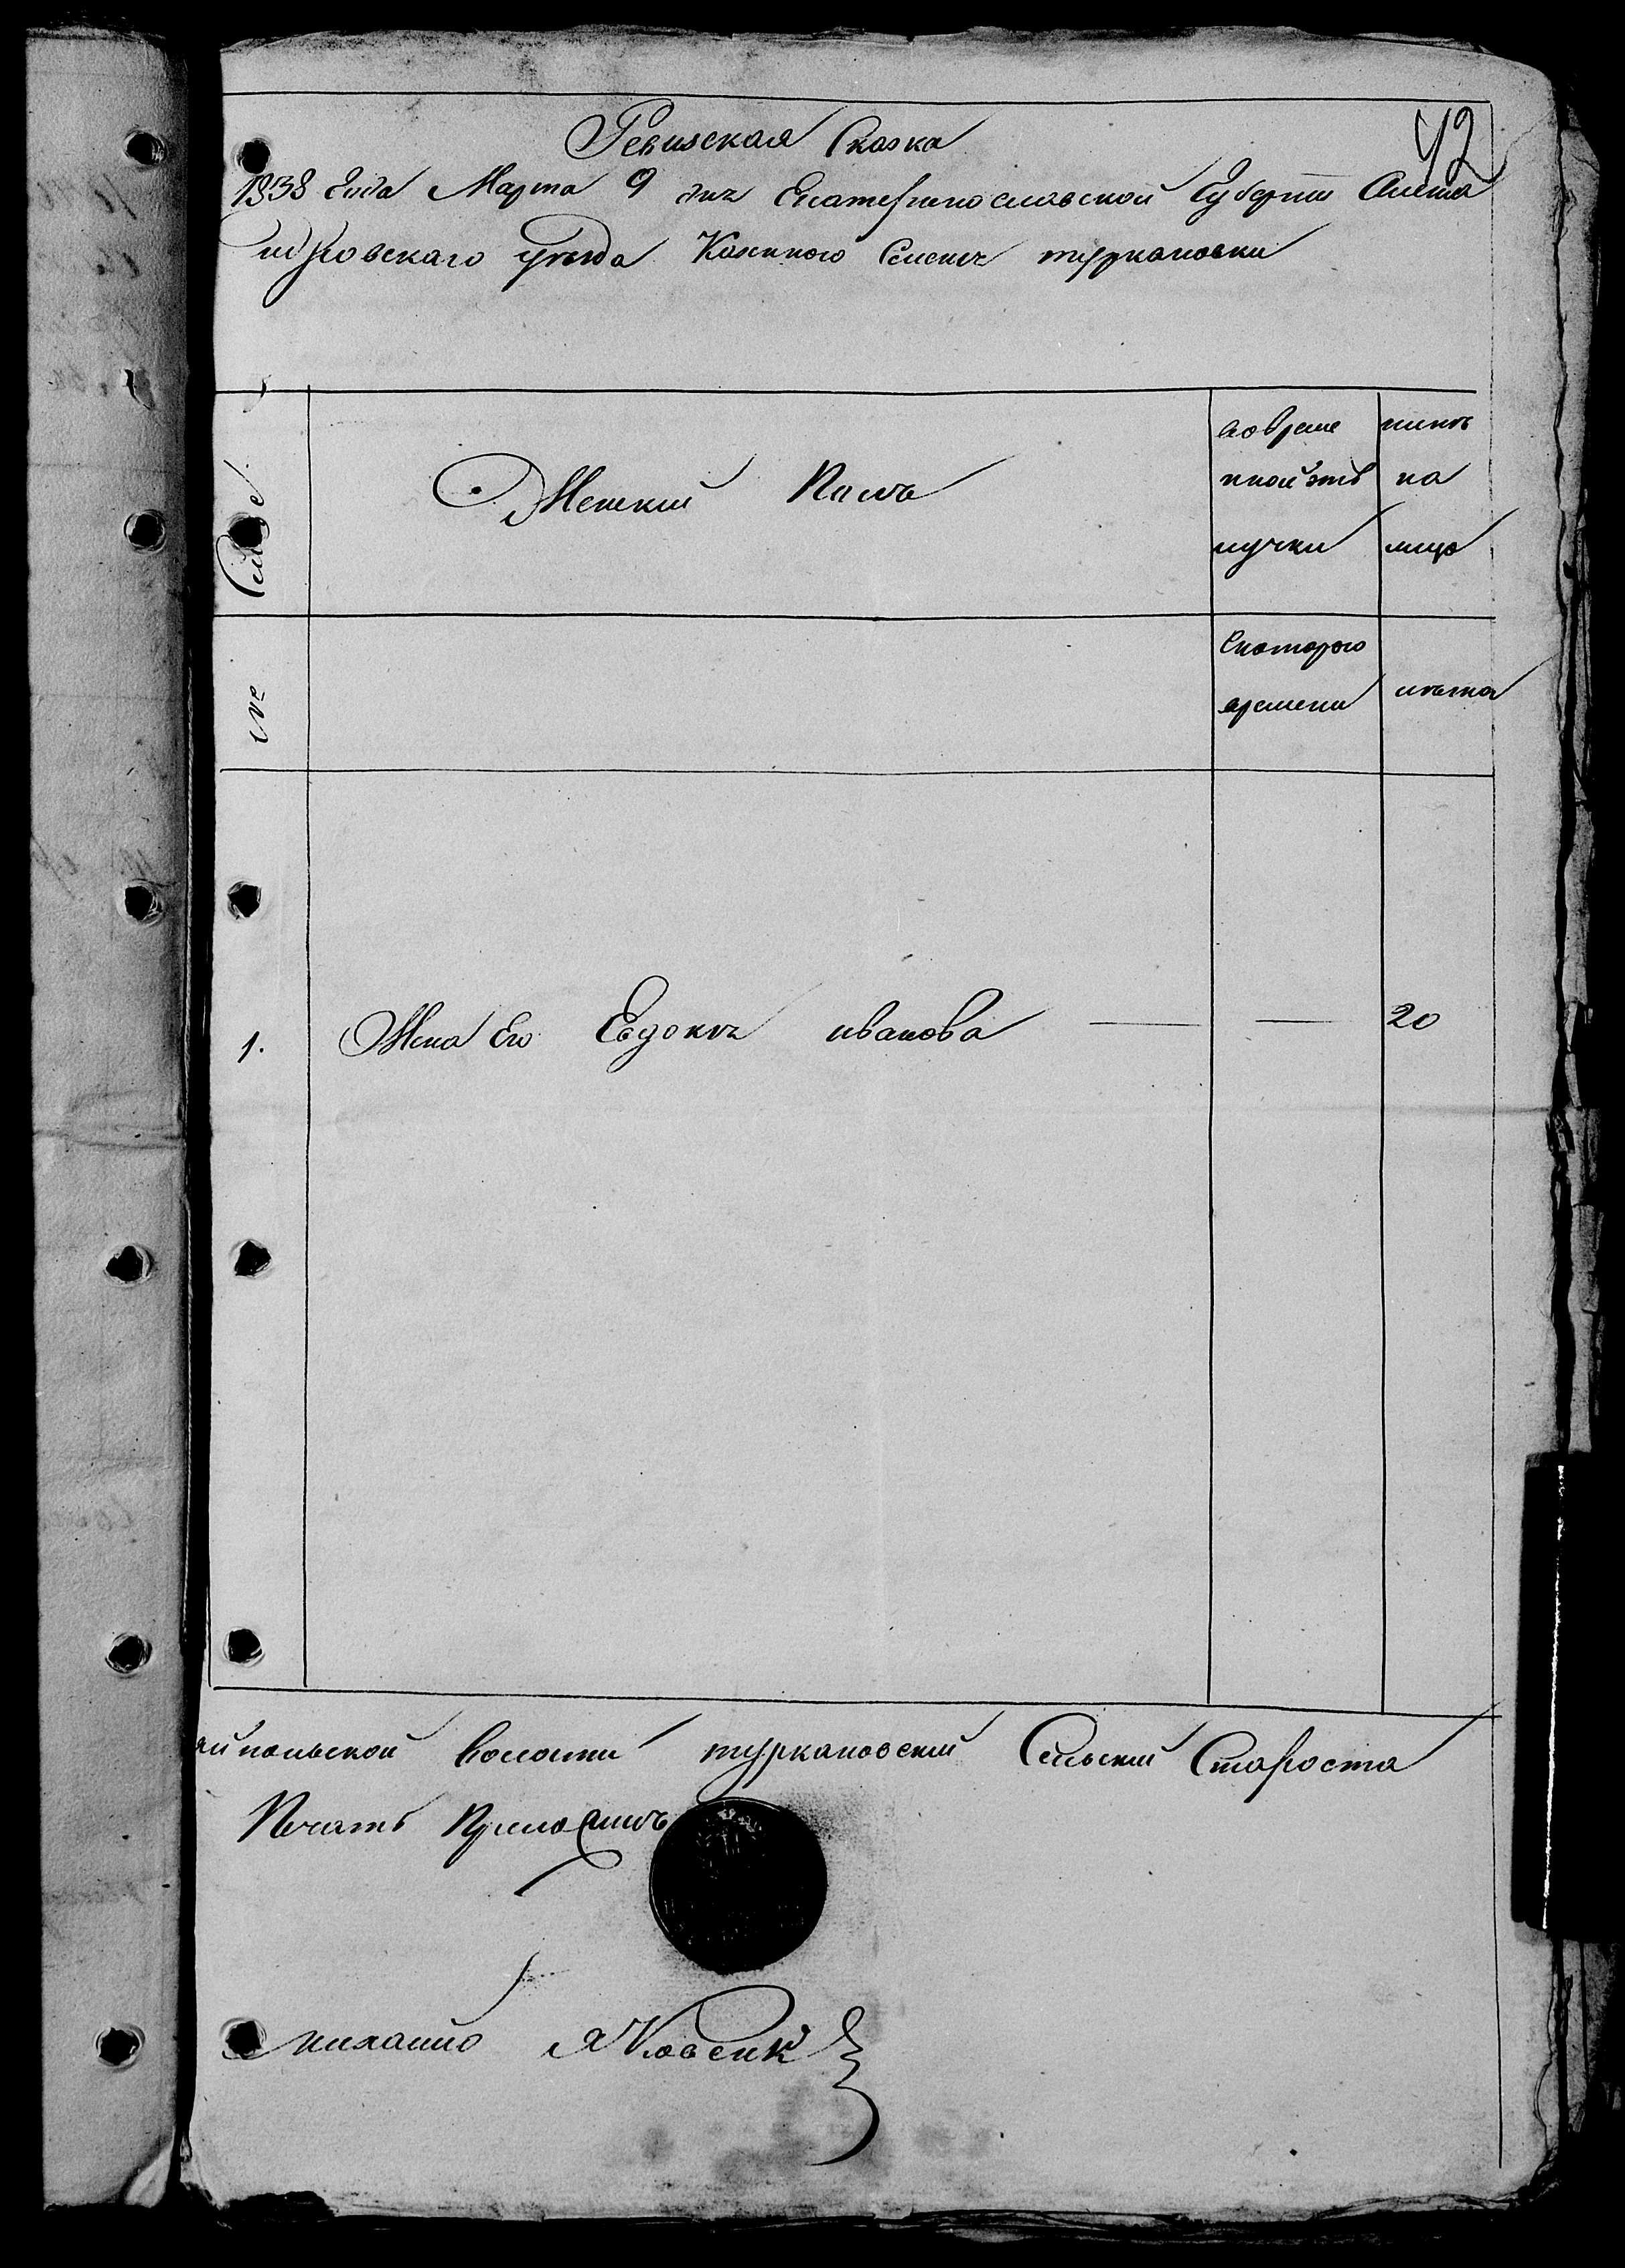 42
Ревизская Сказка
1838 года Марта 9 дня Екатеринославской Губернии Алекса
ндровскаго уезда Казенного Селения туркановки
Семье
Женский Полъ
вовреме
нной отъ
лучки
ныне
на
лицо
№
Скоторого
времени
лета
1. Жена Его Евдокия иванова — — 20
польской волости туркановский Сельский Староста
Печать Приложилъ
михаило Яковенк